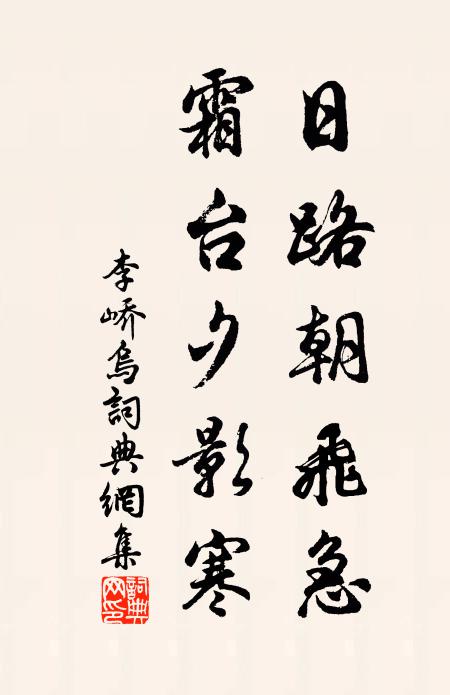 日路朝飛急
霜台夕影寒
李嶠烏詞典網集
詞典網印